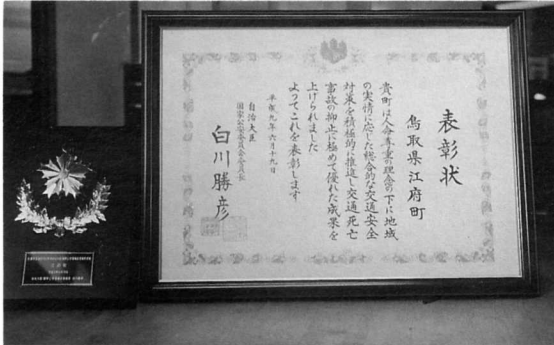 表彰状
鳥取県江府町
貴町は人命尊重の理念の下に地域
の実情に応じた総合的な交通安全
対策を積極的に推進し交通死亡
事故の抑止に極めて優れた成果を
上げられました
よってこれを表彰します
平成九年六月十九日
自治大臣
国家公安委員会委員長
白川勝彦